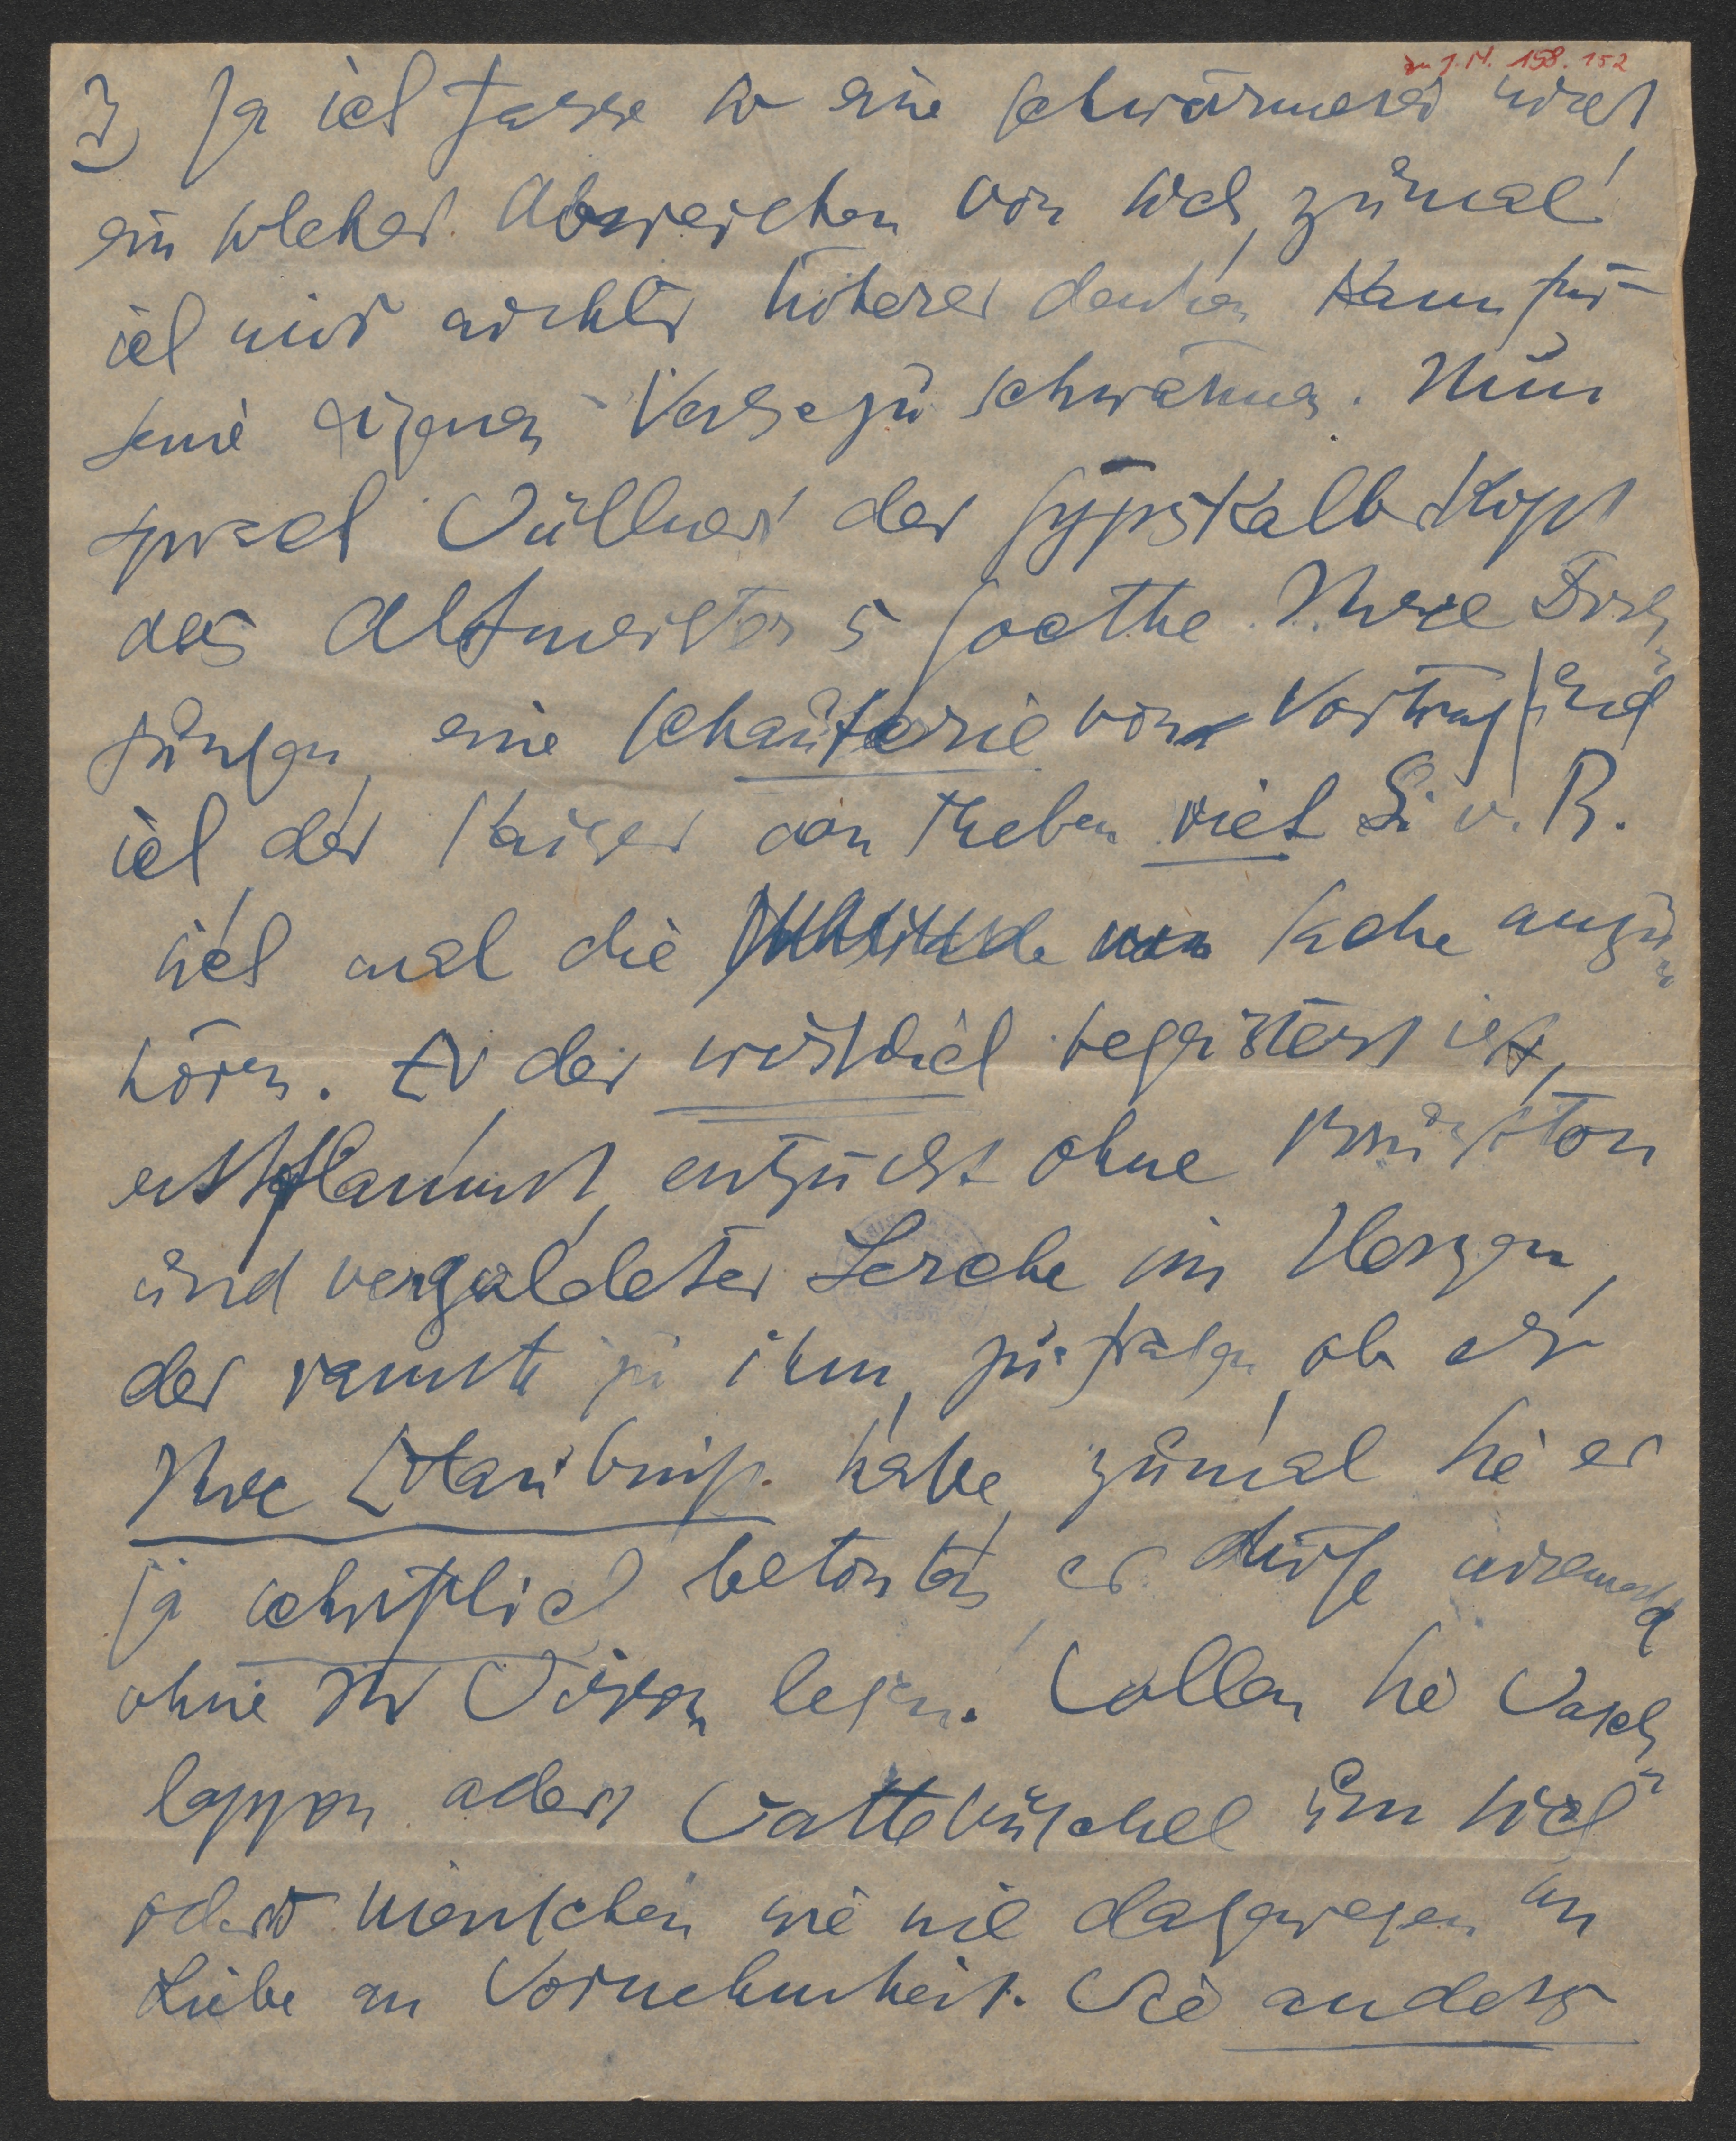 zu J.N. 158.152
3) Ja ich fasse so eine Schwärmerei nicht,
ein solches Abweichen von sich, zumal
ich mir nichts höheres denken kann für
seine eigenen Verse zu schwärmen. Nun
sprach Wüllner der Gypskalbskopf
des Altmeisters Goethe Ihre Dich
tungen, eine Schauferie von Vortrag und
ich, der Kaiser von Theben riet S. v. R.
sich mal die Sache anzu
hören. Er der wirklich begeistert ist,
entflammt, entzückt ohne Brustton
und vergoldeter Lerche im Herzen,
der rannte zu ihm, zu fragen, ob er
Ihre Erlaubniß habe, zumal Sie es
ja schriftlich betonten, es dürfe niemand
ohne Ihr Wissen lesen. Wollen Sie Wasch
lappen oder Wattebüschel um sich
oder Menschen wie nie dagewesen an
Liebe an Vornehmheit. Wie anders